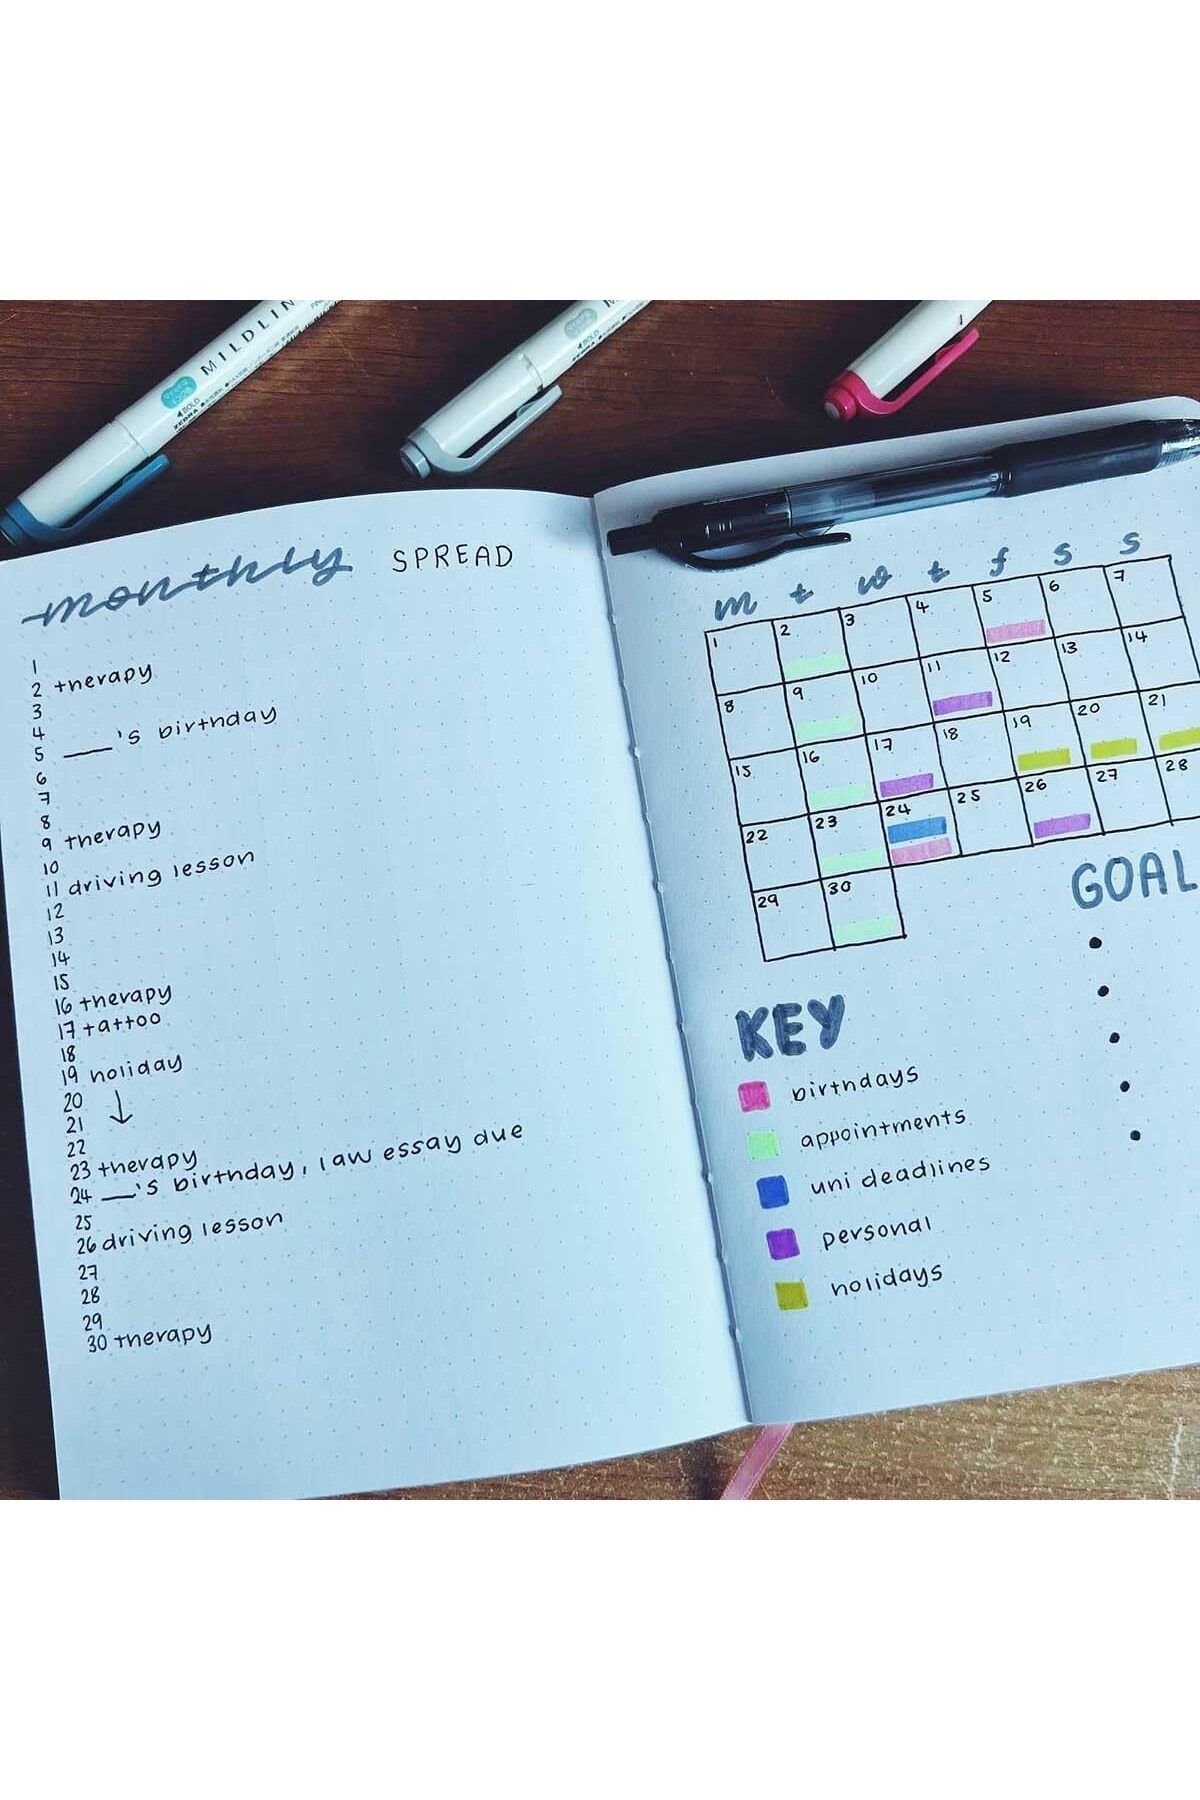 MILDLIN
4 BOLD
ZEBRA
4 BOLD
ZEBRA
monthly SPREAD
1
2 therapy
3
4
5 ____'s birthday
6
7
8
9 therapy
10
11 driving lesson
12
13
14
15
16 therapy
17 tattoo
18
19 holiday
20
21
22
23 therapy
24 ___'s birthday, law essay due
25
26 driving lesson
27
28
29
30 therapy
m t w t f s s
1 2 3 4 5 6 7
8 9 10 11 12 13 14
15 16 17 18 19 20 21
22 23 24 25 26 27 28
29 30
GOAL
KEY
birthdays
appointments
uni deadlines
personal
holidays